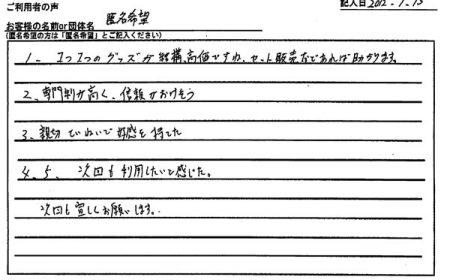 ご利用者の声
記入日 2012.9.13
お客様の名前or団体名 匿名希望
(匿名希望の方は「匿名希望」とご記入ください)
1、1つ1つのグッズが結構、高価ですね、セット販売などあれば助かります。
2、専門制が高く、信頼がおけそう
3、親切ていねいで好感を持てた
4、5、 次回も利用したいと感じた。
次回も宜しくお願いします。